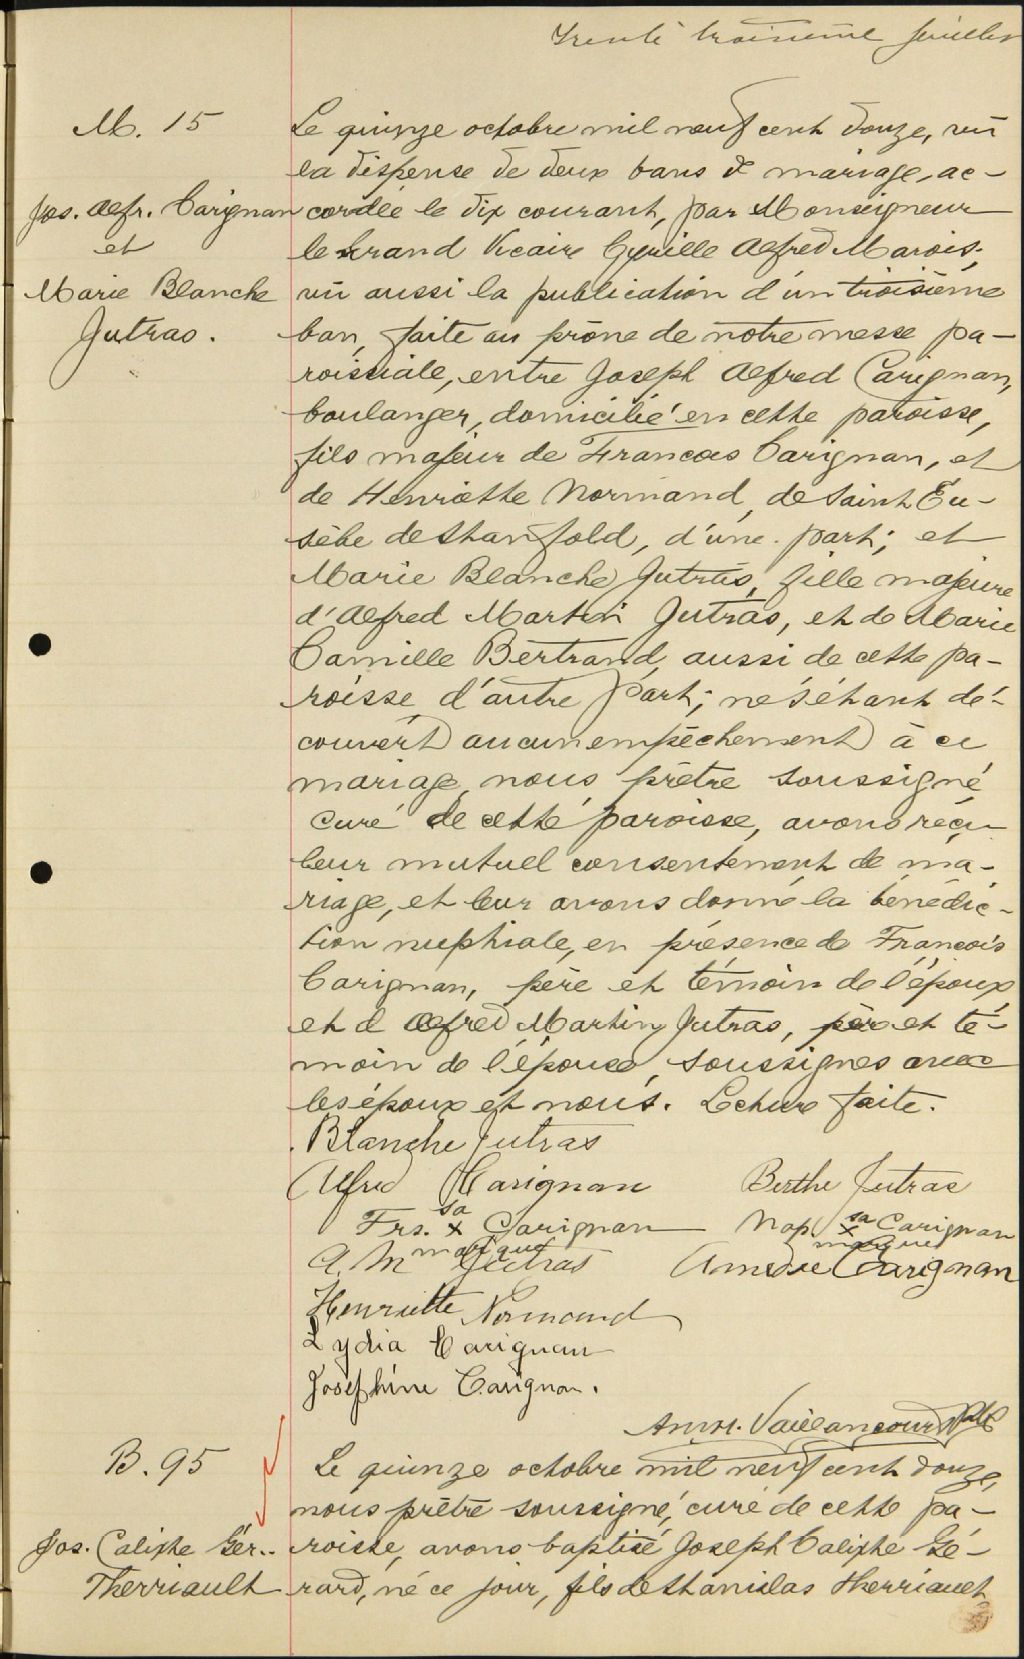 Trente troisième feuillet
M. 15
Jos. Alfr. Carignan
et
Marie Blanche
Jutras.
Le quinze octobre mil neuf cent douze, vu
la dispense de deux bans de mariage, ac-
cordée le dix courant, par Monseigneur
le Grand Vicaire Cyrille Alfred Marois,
vu aussi la publication d'un troisième
ban, faite au prône de notre messe pa-
roissiale, entre Joseph Alfred Carignan,
boulanger, domicilié en cette paroisse,
fils majeur de Francois Carignan, et
de Henriette Normand, de Saint Eu-
sèbe de Stanfold, d'une part; et
Marie Blanche Jutras, fille majeure
d'Alfred Martin Jutras, et de Marie
Camille Bertrand, aussi de cette pa-
roisse, d'autre part; ne s'étant dé-
couvert aucun empêchement à ce
mariage, nous prêtre soussigné
curé de cette paroisse, avons reçu
leur mutuel consentement de ma-
riage, et leur avons donné la bénédic-
tion nuptiale, en présence de François
Carignan, père et témoin de l'époux
et d'Alfred Martin Jutras, père et té-
moin de l'épouse, soussignés avec
les époux et nous. Lecture faite.
Blanche Jutras
Alfred Carignan Berthe Jutras
Frs. sa x marque Carignan Nap. sa x marque Carignan
A. M Jutras Amédée Carignan
Henriette Normand
Lydia Carignan
Joséphine Carignan.
Vaillancourt Ptre
B. 95
Jos. Calixte Gér..
Therriault
Le quinze octobre mil neuf cent douze,
nous prêtre soussigné, curé de cette pa-
roisse, avons baptisé Joseph Calixte Gé-
rard, né ce jour, fils de Stanislas Therriault,